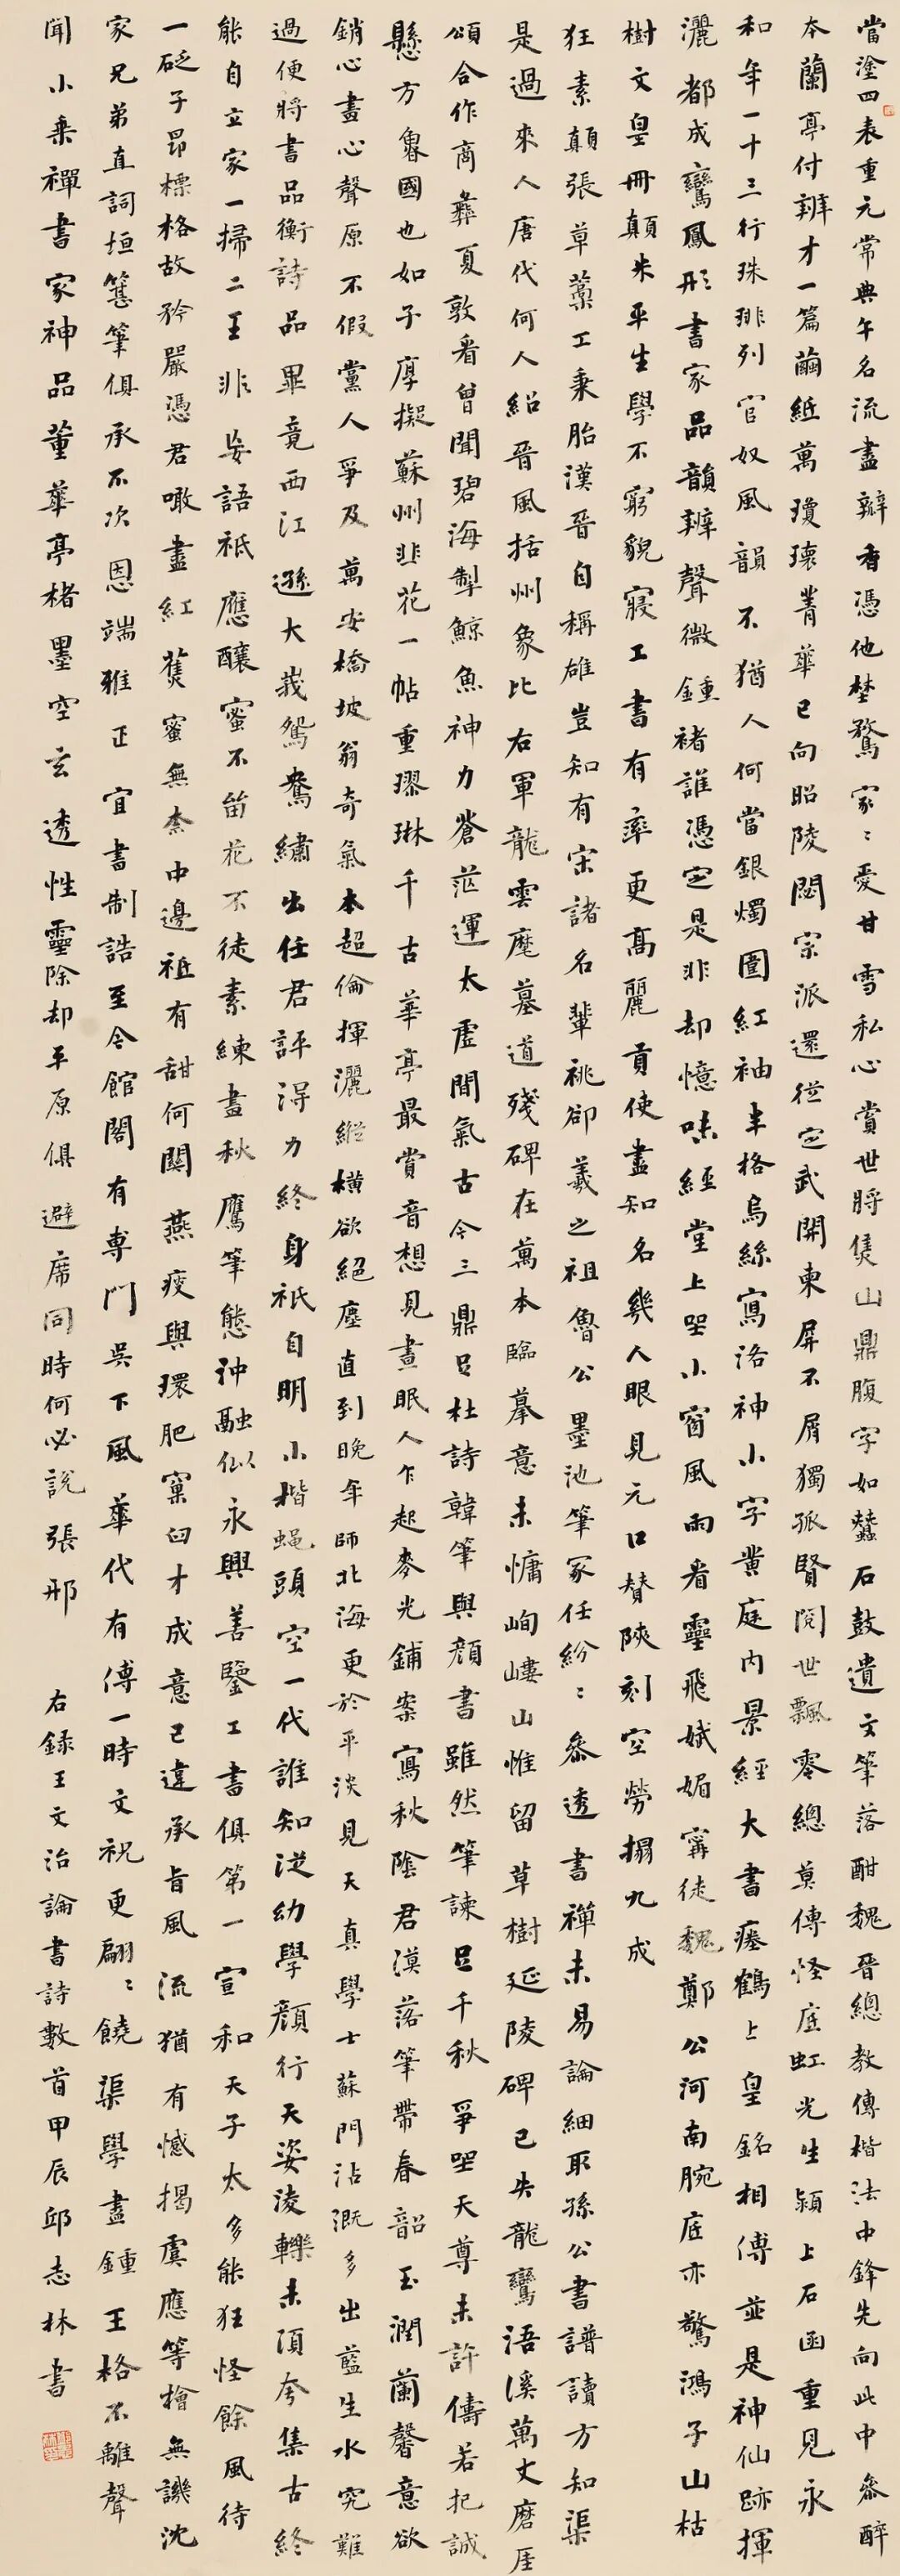 當塗四表重元常典午名流盡瓣香憑他埜鶩家﹕愛甘雪私心賞世將隻山鼎腹字如蠶石鼓遺文筆落酣魏晉總教傳楷法中鋒先向此中叅醉
本蘭亭付辨才一篇繭紙萬瓊瓌菁華已向昭陵閟宗派還從定武開東屏不屑獨孤賢閱世飄零總莫傳怪底虹光生潁上石函重見永
和年一十三行珠琲列官奴風韻不猶人何當銀燭圍紅袖半格烏絲寫洛神小字黃庭內景經大書瘞鶴上皇銘相傳並是神仙跡揮
灑都成鸞鳳形書家品韻辨聲微鍾褚誰憑定是非却憶味經堂上坐小窗風雨看靈飛娬媚寗徒魏鄭公河南腕底亦驚鴻子山枯
樹文皇冊顛米平生學不窮貌寢工書有率更高麗貢使盡知名幾人眼見元口贊陝刻空勞搨九成
狂素顛張草藁工秉胎漢晉自稱雄豈知有宋諸名輩祧卻羲之祖魯公墨池筆冢任紛﹕叅透書禪未易論細取孫公書譜讀方知渠
是過來人唐代何人紹晉風括州象比右軍龍雲麾墓道殘碑在萬本臨摹意未慵峋嶁山惟留草樹延陵碑已失龍鸞浯溪萬丈磨厓
頌合作商彝夏敦看曾聞碧海掣鯨魚神力蒼茫運太虛間氣古今三鼎呂杜詩韓筆與顏書雖然筆諫呂千秋爭坐天尊未許儔若把誠
懸方魯國也如子厚擬蘇州韭花一帖重璆琳千古華亭最賞音想見晝眠人乍起麥光鋪案寫秋陰君漠落筆帶春韶玉潤蘭馨意欲
銷心畫心聲原不假黨人爭及萬安橋坡翁奇氣本超倫揮灑縱橫欲絕塵直到晚年師北海更於平淡見天真學士蘇門沾溉多出藍生水究難
過便將書品衡詩品畢竟西江遜大莪鴛鴦繡出任君評得力終身祇自明小楷蝇頭空一代誰知從幼學顏行天姿淩轢未須夸集古終
能自立家一掃二王非妄語祇應釀蜜不留花不徒素練畫秋鷹筆態沖融似永興善鑒工書俱第一宣和天子太多能狂怪餘風待
一砭子昂標格故矜嚴憑君噉盡紅蕉蜜無柰中邊祇有甜何關燕瘦與環肥窠臼才成意已違承旨風流猶有憾揭虞應等檜無譏沈
家兄弟直詞垣簪筆俱承不次恩端雅正宜書制誥至今館閣有專門吳下風華代有傳一時文祝更翩﹕饒渠學盡鍾王格不離聲
聞小乘禪書家神品董華亭楮墨空玄透性靈除却平原俱避席同時何必說張邢 右錄王文治論書詩數首甲辰邱志林書